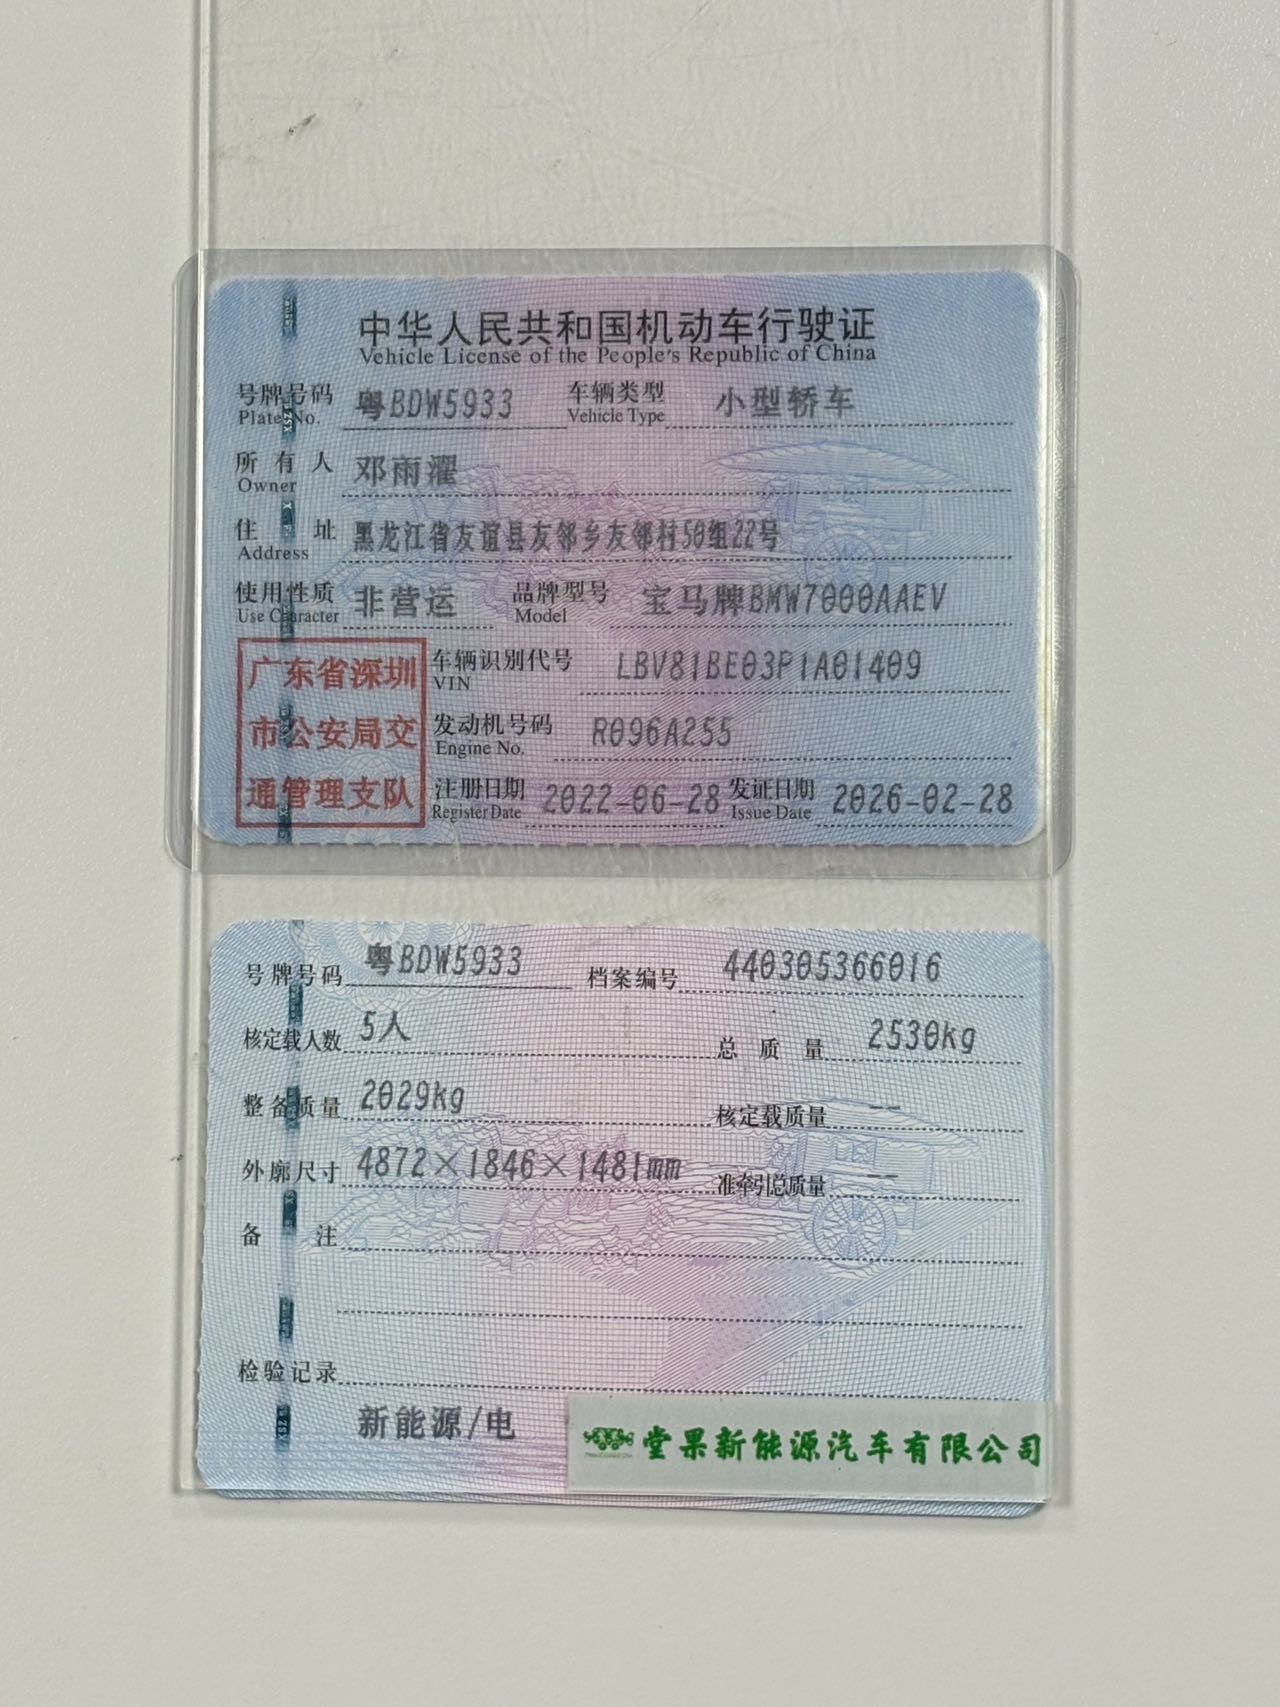 中华人民共和国机动车行驶证
Vehicle License of the People's Republic of China
号牌号码 粤BDW5933 车辆类型 小型轿车
Plate No. Vehicle Type
所有人 邓雨濯
Owner
住址 黑龙江省友谊县友邻乡友邻村50组22号
Address
使用性质 非营运 品牌型号 宝马牌BMW7000AAEV
Use Character Model
广东省深圳
市公安局交
通管理支队
车辆识别代号 LBV81BE03P1A01409
VIN
发动机号码 R096A255
Engine No.
注册日期 2022-06-28 发证日期 2026-02-28
Register Date Issue Date
号牌号码 粤BDW5933 档案编号 440305366016
核定载人数 5人 总质量 2530kg
整备质量 2029kg 核定载质量 --
外廓尺寸 4872×1846×1481mm 准牵引总质量 --
备注
检验记录
新能源/电
堂果新能源汽车有限公司